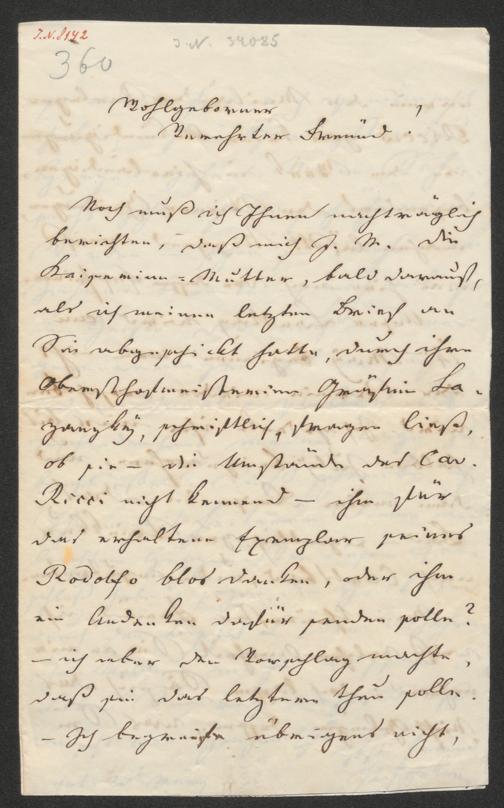 J.N. 8142
J.N. 34085
360
Wohlgeborner
Verehrter Freünd!
Noch muß ich Ihnen nachträglich
berichten, daß mich J. M. die
Kaiserinn-Mutter, bald darauf,
als ich meinen letzten Brief an
Sie abgeschickt hatte, durch ihre
Obersthofmeisterinn Gräfinn La-
zanzky, schriftlich, fragen ließ,
ob sie – die Umstände des Cav.
Ricci nicht kennend – ihm für
das erhaltene Exemplar seines
Rodolfo blos danken, oder ihm
ein Andenken dafür senden solle?
– ich aber den Vorschlag machte,
daß sie das letztere thun solle.
– Ich begreife übrigens nicht,